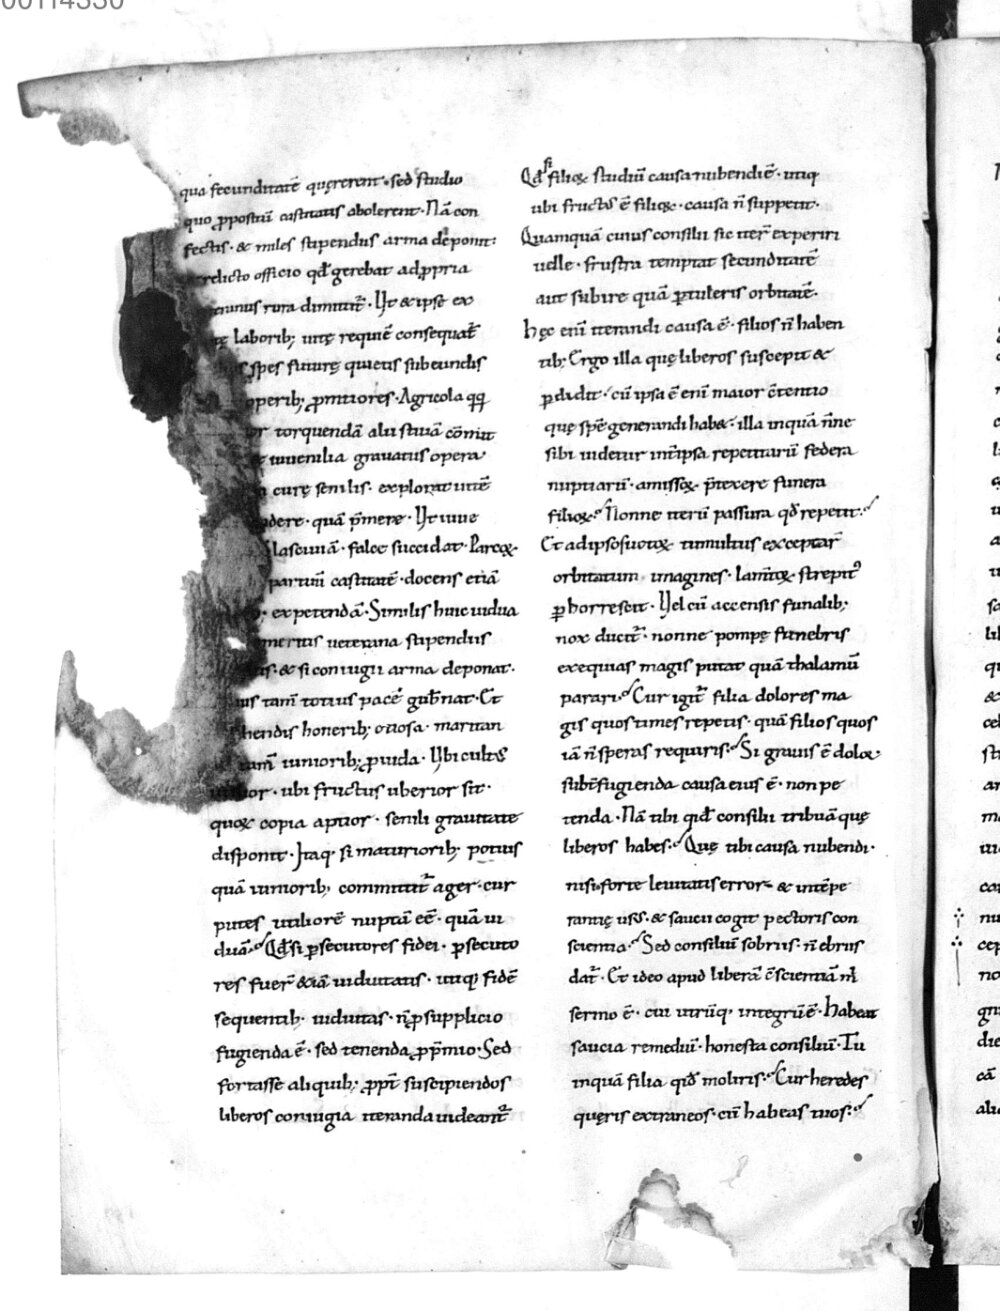 00114330
qua fecunditatē quęrerent · sed studio
quo ꝓpositū castitatis abolerent · Nā con
fectis · & miles stipendiis arma deponit :
relicto officio qđ gerebat ad ꝓpria
ueteranus rura dimittit᷑ · Ut & ipse ex
laborib; uitę requiē consequat᷑
spes futurę quietis subeundis
operib; ꝓmtiores · Agricola qq̨
torquendā alii stiuā cōmit
iuuenilia grauatus opera
curę senilis · explorat uitē
quā p̄mere · Ut iuue
lasciuiā · falce succidat · Parcoꝝ
partuū castitatē · docens etiā
expetendā · Similis huic uidua
emeritis ueterana stipendiis
& si coniugii arma deponat ·
tam̄ totius pacē gub̄nat · Et
uehendis honerib; otiosa · maritan
tam̄ iunioribꝫ ꝓuida · Ubi cultꝰ
utilior · ubi fructus uberior sit ·
quoꝝ copia aptior · senili grauitate
disponit · Itaq; si maturiorib; potius
quā iuniorib; committit᷑ ager · cur
putes utiliorē nuptā eē · quā ui
duā · Qđ si ꝑsecutores fidei · ꝑsecuto
res fuer̄ & iā uiduitatis · utiq; fidē
sequentib; uiduitas · n̄ ꝓ supplicio
fugienda ē · sed tenenda ꝓ p̄mio · Sed
fortasse aliquib; ꝓpt̄ suscipiendos
liberos coniugia iteranda uideant᷑
Qđ si filioꝝ studiū causa nubendi ē · utiq;
ubi fructꝰ ē filioꝝ · causa n̄ suppetit ·
Quamquā cuius consilii sit iter̄ experiri
uelle · frustra temptat fecunditatē
aut subire quā ꝑtuleris orbitatē ·
hęc eni iterandi causa ē · filios n̄ haben
tib; Ergo illa quę liberos suscepit &
ꝑdidit · cū ipsa ē eni maior c̄tentio
quę spē generandi habet · illa inquā n̄ne
sibi uidetur int̄ ipsa repetitarū federa
nuptiarū · amissoꝝ p̄texere funera
filioꝝ · Nonne iterū passura qđ repetit ·
Et ad ipsos uotoꝝ tumultus exceptar̄
orbitatum imagines · lam̄toꝝ strepitꝰ
ꝑhorrescit · Uel cū accensis funalib;
nox ducit᷑ · nonne pompę funebris
exequias magis putat quā thalamū
parari · Cur igit᷑ filia dolores ma
gis quos times repetis · quā filios quos
iā n̄ speras requiris · Si grauis ē dolor
subt̄fugienda causa eius ē · non pe
tenda · Nā tibi qid consilii tribuā quę
liberos habes · Quę tibi causa nubendi ·
nisi · forte leuitatis error · & intēpe
rantię usꝰ · & saucii cogit pectoris con
scientia · Sed consiliū sobriis · n̄ ebriis
dat᷑ · Et ideo apud liberā c̄scientiā m̄
sermo ē · cui utrūq; integrū ē · habeat
saucia remediū · honesta consiliū · Tu
inquā filia qid moliris · Cur heredes
quęris extraneos · cū habeas tuos ·